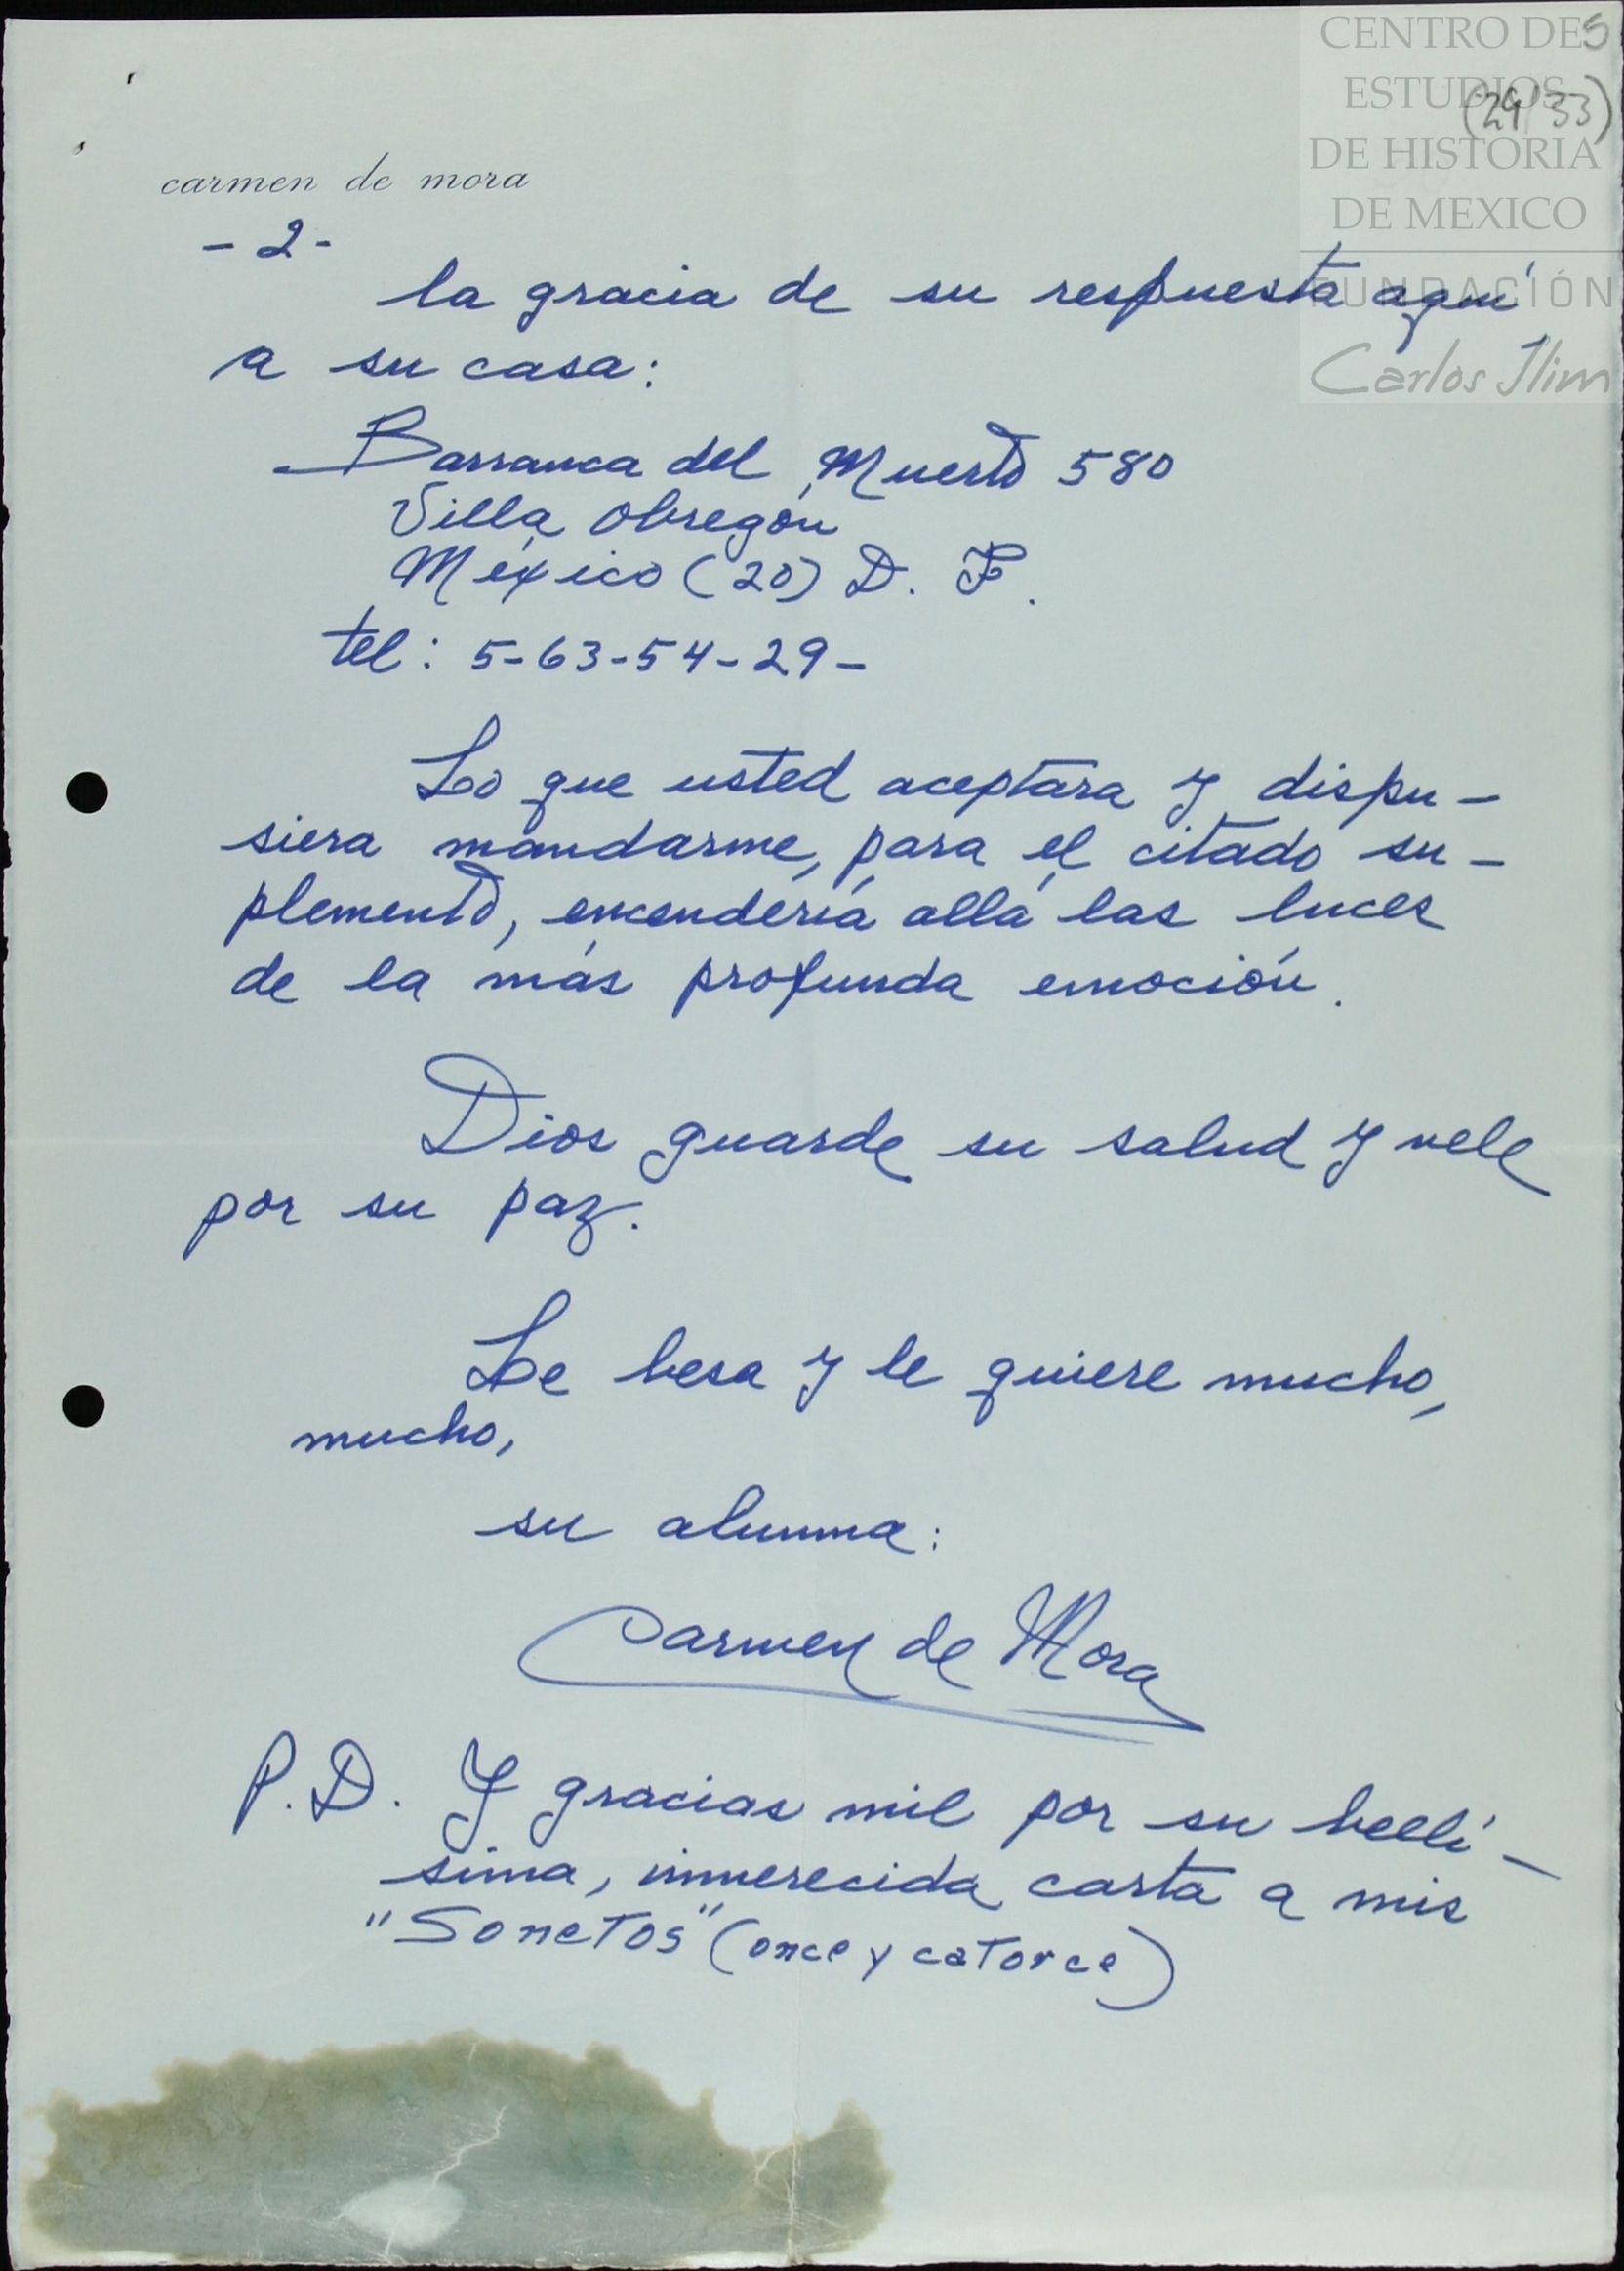 CENTRO DE
ESTUDIOS
DE HISTORIA
DE MEXICO
FUNDACIÓN
Carlos Slim
5
(29/33)
carmen de mora
- 2 -
la gracia de su respuesta aquí
a su casa:
Barranca del Muerto 580
Villa Obregón
México (20) D. F.
tel: 5-63-54-29-
Lo que usted aceptara y dispu-
siera mandarme, para el citado su-
plemento, encendería allá las luces
de la más profunda emoción.
Dios guarde su salud y vele
por su paz.
Le besa y le quiere mucho,
mucho,
su alumna:
Carmen de Mora
P.D. Y gracias mil por su bellí-
sima, inmerecida carta a mis
"Sonetos" (once y catorce)